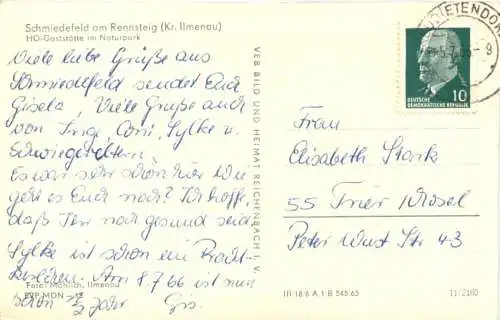 Schmiedefeld am Rennsteig (Kr. Ilmenau)
HO-Gaststätte im Naturpark
Viele liebe Grüße aus
Schmiedefeld sendet Euch
Gisela, Viele Grüße auch
von Ingo, Sylke u.
Schwiegereltern.
Es war sehr schön hier Wie
geht es Euch noch? Ich hoffe,
daß Ihr noch gesund seid.
Sylke ist schon ein Pracht-
Am 8.7.66 ist nun
schon 1/2 Jahr. Gis.
Foto: Mählich, Ilmenau
EVP MDN
VEB BILD UND HEIMAT REICHENBACH I. V.
DIETENDORF
10
DEUTSCHE
DEMOKRATISCHE REPUBLIK
Frau
Elisabeth Stark
55 Trier Mosel
Peter Wust Str 43
III 18/6 A 1 B 545/65
11/2160